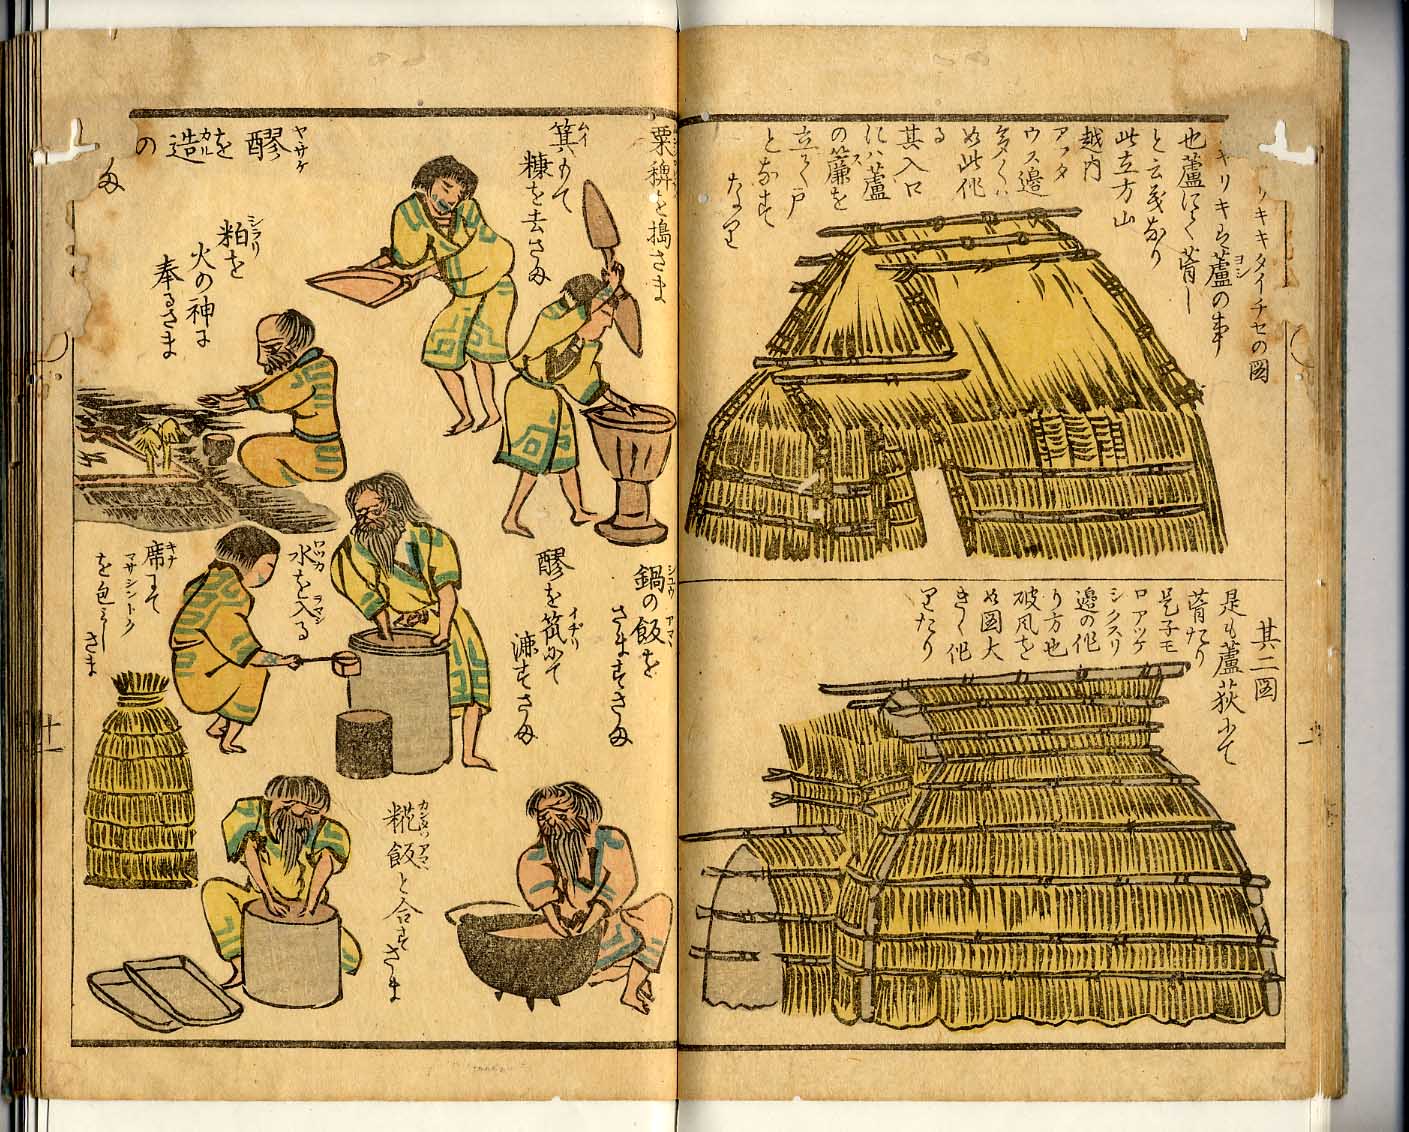 キキタイーチセの圖
キリキキハ蘆の事
也蘆にて葺し
と云義なり
此立方山
越内
アフタ
ウス邉
多くハ
如此作
る
其入口
にハ蘆
の簾を
立て戸
となす
なり
其二圖
是も蘆荻にて
葺たり
是子モ
ロアツケ
シクスリ
邉の作
り方也
破風を
如圖大
きく作
りたり
粟稗を搗さま
箕もて
糠を去さま
ムイ
醪を造るの
ヤサケ
カル
粕を
シラリ
火の神に
奉るさま
鍋の飯を
シユウ
アマヽ
さますさま
醪を笊にて
イチヤリ
漉すさま
水を入る
ワツカ
ラマシ
席にて
キナ
マサシントク
を包みしさま
糀飯と合すさま
カンタチ
アマヽ
十一